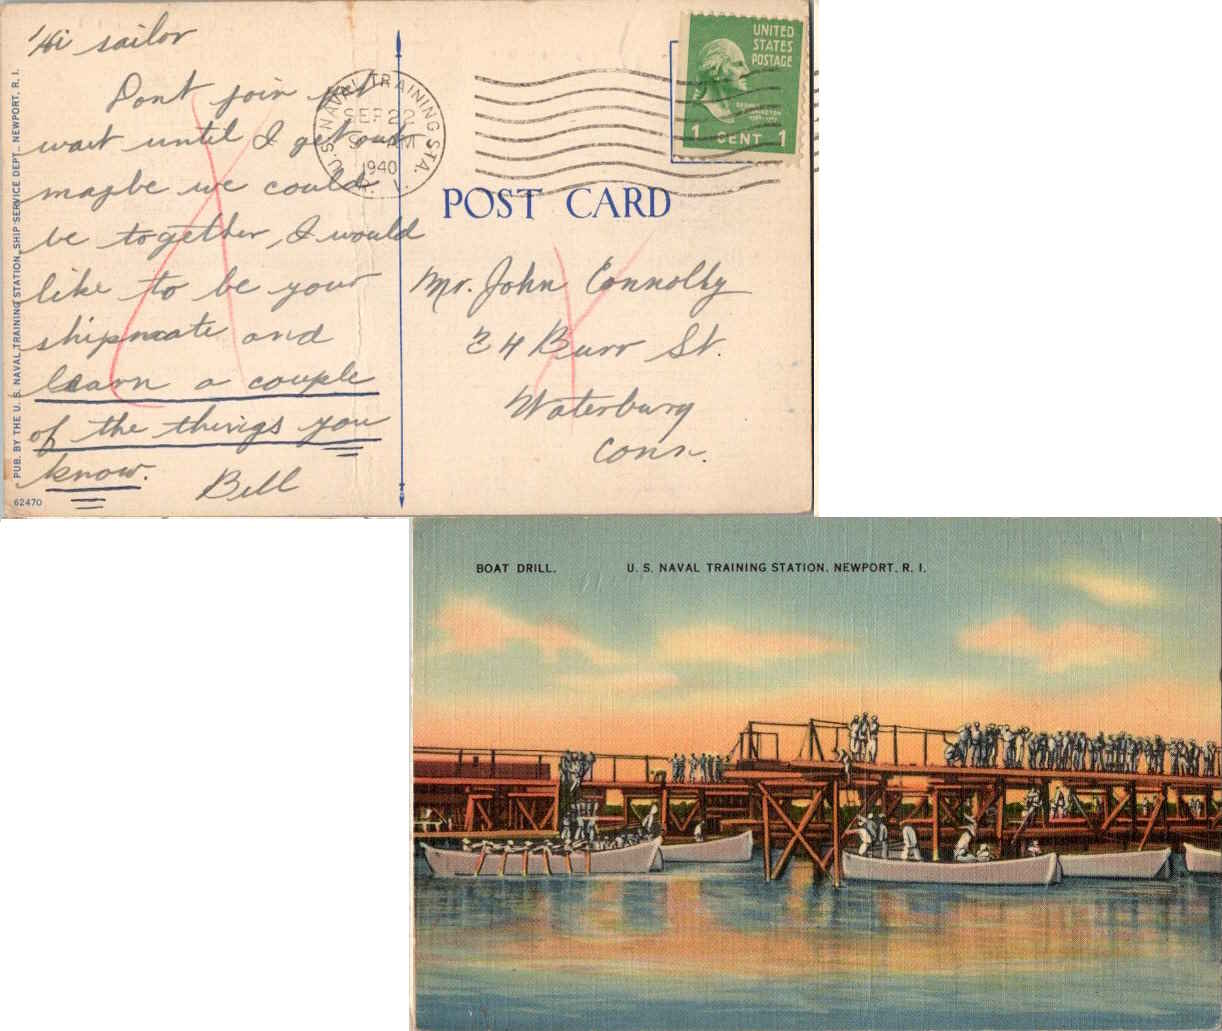 Hi sailor
Dont join yet
wait until I get out
maybe we could
be together, I would
like to be your
shipmate and
learn a couple
of the things you
know.
Bill
PUB. BY THE U. S. NAVAL TRAINING STATION, SHIP SERVICE DEPT., NEWPORT, R. I.
62470
U.S. NAVAL TRAINING STA.
SEP 20
9 AM
1940
R. I.
UNITED
STATES
POSTAGE
1 CENT 1
POST CARD
Mr. John Connolly
24 Burr St.
Waterbury
Conn.
BOAT DRILL. U. S. NAVAL TRAINING STATION, NEWPORT, R. I.